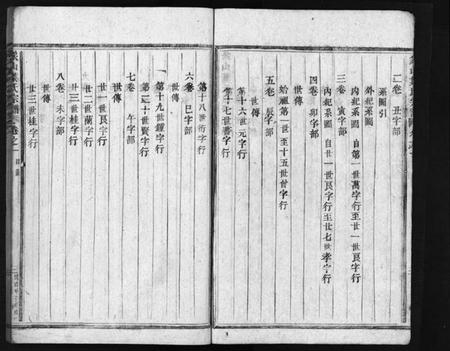 二卷 丑字部
系圖引
外紀系圖
內紀系圖 自第一世萬字行至廿一世艮字行
三卷 寅字部
內紀系圖 自廿一世艮字行至廿七世孝字行
四卷 卯字部
始祖第一世至十五世曾字行
五卷 辰字部
世傳
第十六世元字行
第十七世
第十八世衍字行
六卷 巳字部
世傳
第十九世鍾字行
第二十世賢字行
七卷 午字部
世傳
廿一世艮字行
廿二世蘭字行
廿三世桂字行
八卷 未字部
廿三世桂字行